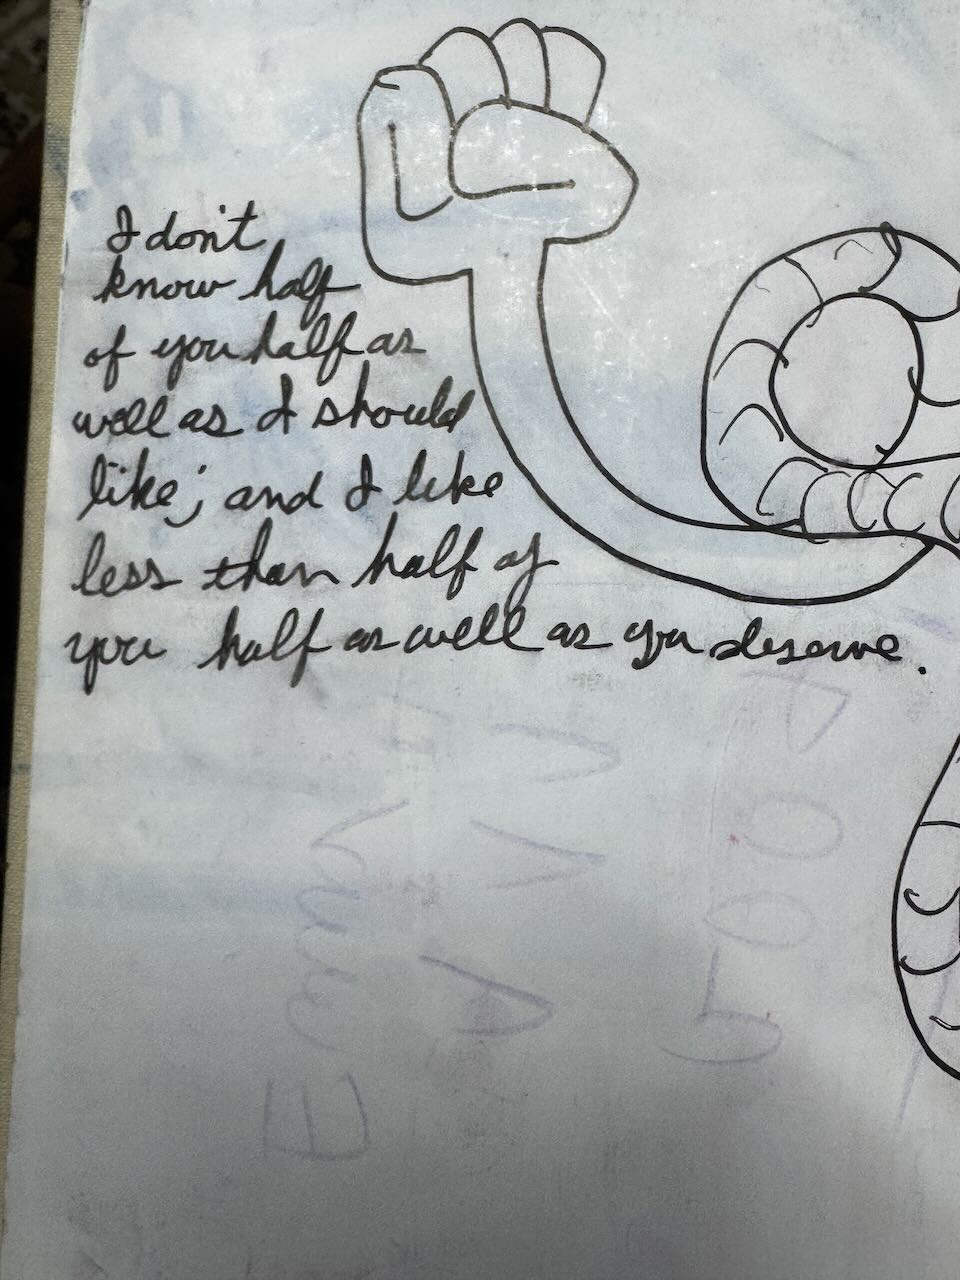 I don't
know half
of you half as
well as I should
like; and I like
less than half of
you half as well as you deserve.